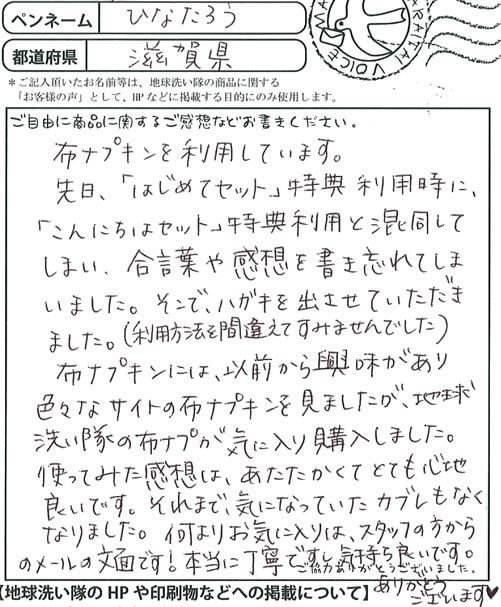 ペンネーム ひなたろう
都道府県 滋賀県
VOICE
＊ご記入頂いたお名前等は、地球洗い隊の商品に関する
「お客様の声」として、HPなどに掲載する目的にのみ使用します。
ご自由に商品に関するご感想などお書きください。
布ナプキンを利用しています。
先日、「はじめてセット」特典 利用時に、
「こんにちはセット」特典利用と混同して
しまい、合言葉や感想を書き忘れてしま
いました。そこで、ハガキを出させていただき
ました。(利用方法を間違えてすみませんでした)
布ナプキンには、以前から興味があり
色々なサイトの布ナプキンを見ましたが、地球
洗い隊の布ナプが気に入り購入しました。
使ってみた感想は、あたたかくてとても心地
良いです。それまで、気になっていたカブレもなく
なりました。何よりお気に入りは、スタッフの方から
のメールの文面です!本当に丁寧ですし気持ち良いです。
ご協力ありがとうございました。
【地球洗い隊のHPや印刷物などへの掲載について】
ありがとう
ございます♥